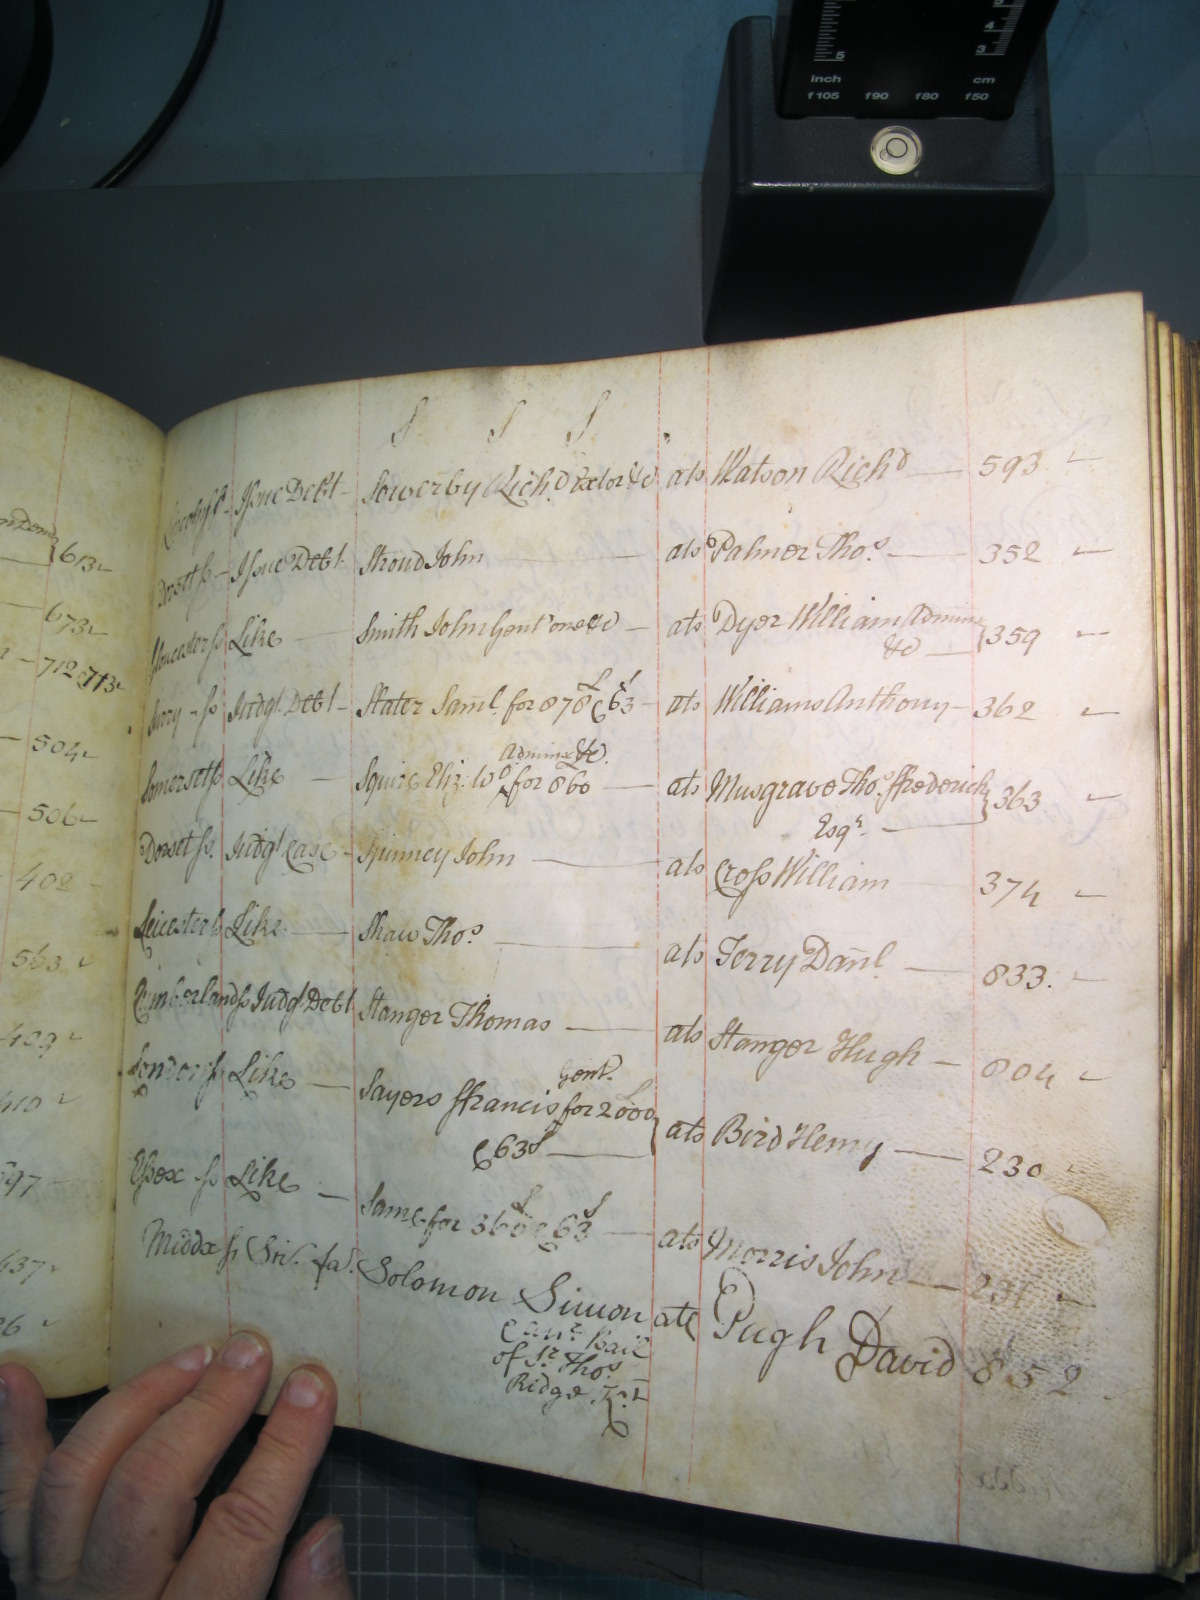 5
4
5
3
inch
cm
f105 f90 f80 f50
S S S
Issue Debt - Sowerby Richd Exŏr &c ats Watson Richd — 593
Dorset ss - Issue Debt Stroud John — ats Palmer Thos. — 352
Gloucester ss Like — Smith John Gent one &c — ats Dyer William Admin
&c — 359
Surry - ss Judgt Debt - Slater Saml. for 878£ & 63s - ats Williams Anthony - 362
Admix &c.
Somerset ss Like — Squire Eliz. Wd. for 860 — ats Musgrave Thos. ffrederick
Esqr. — 363
Dorset ss. Judgt Case - Spinney John — ats Cross William 374
Leicester ss Like — Shaw Thos. — ats Terry Danl. — 833.
Cumberland ss Judgt Debt Stanger Thomas — ats Stanger Hugh — 804
Gent.
London ss Like — Sayers ffrancis for 2000£
& 63s — ats Bird Henry — 230
Essex ss Like — Same for 365£ & 63s — ats Morris John — 231
Middx ss Sci. fa. Solomon Simon ats Pugh David 852
Bail
of Sr. Thos.
Ridge Knt
613
673
712 & 713
504
506
402
563
409
410
597
437